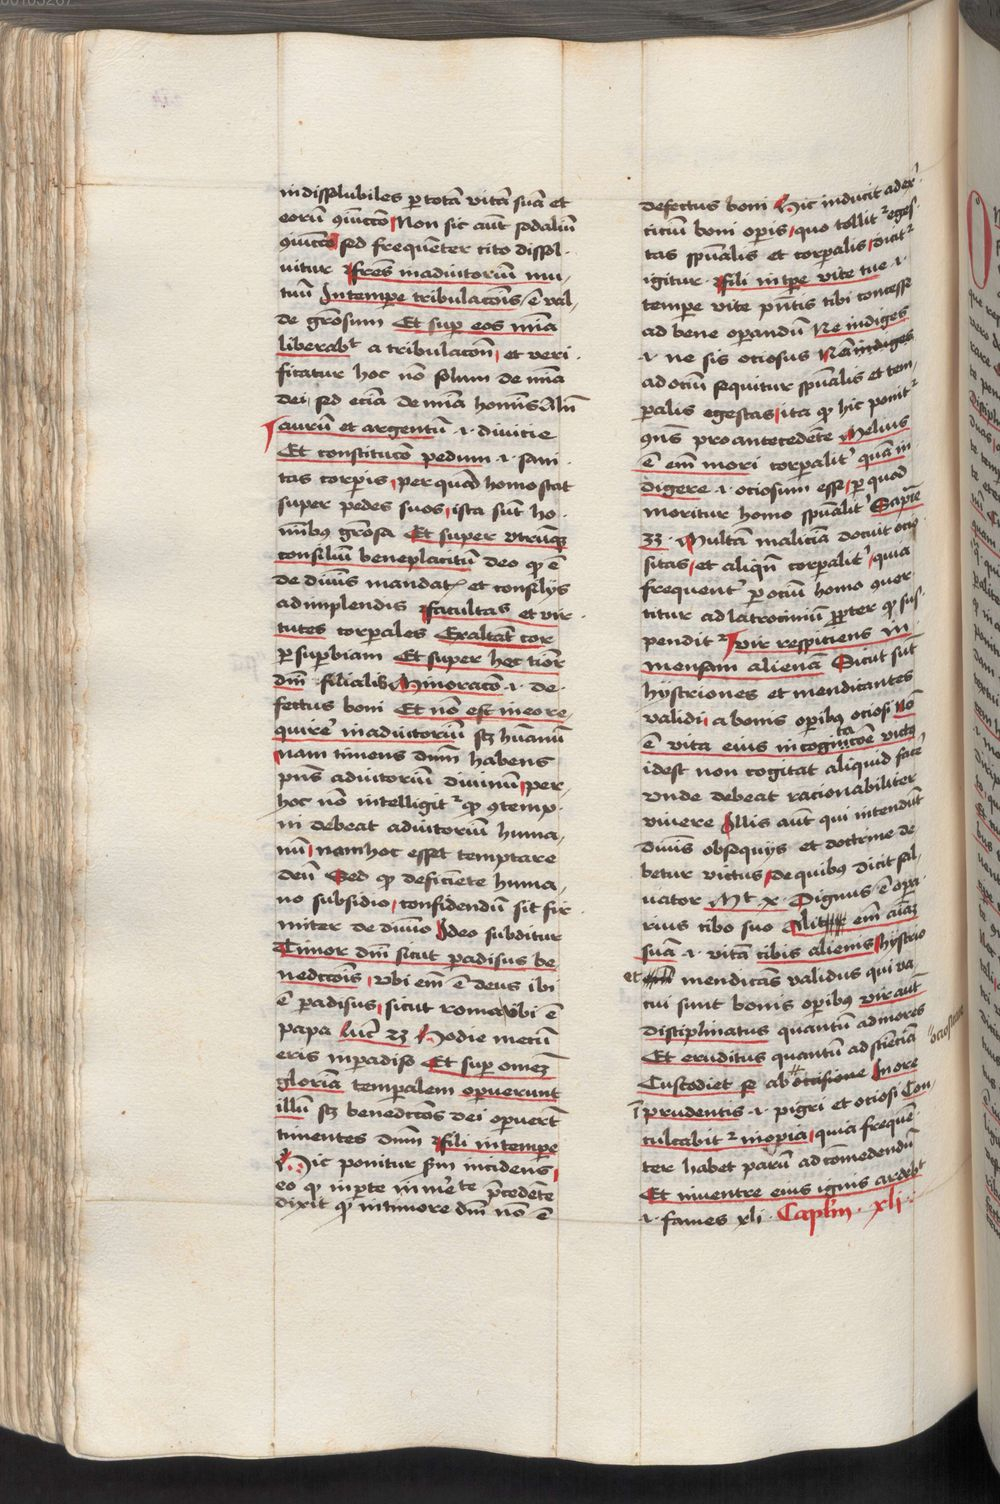 indissolubiles p totā vitā suā et
eorū ɔiūctōo Non sic aūt sodaliū
ɔiūctō sed frequēter cito dissol-
uitur ffrēs in adiutoriū mu-
tuū In tempe tribulacōis / ē val-
de grōsum Et sup eos mīa
liberabt a tribulacōn et veri-
ficatur hoc nō solum de mīa
dei sed eciā de mīa homīs Aliū
aurū et argentū .i. diuicie
Et constitucō pedum .i. sani-
tas corpis per quā homo stat
super pedes suos ista sūt ho-
mībꝰ grōsa Et super vtrūqꝫ
consiliū beneplacitū deo qd ē
de diuīs mandat et consilijs
adimplendis ffacultas et vir-
tutes corpales Exaltāt cor
p supbiam Et super hec tiōr
dnī filialis Minoracō .i. de-
fectus boni Et nō est in eo re-
quirē in adiutoriū sꝫ hūanū
nam timens dnm habens
pns adiutoriū diuinū per
hoc nō intelligitr qd ɔtemp-
ni debeat adiutoriū huma-
nū nam hoc esset temptare
deū Sed qd deficiēte huma-
no subsidio confidendū sit fir-
miter de diuīo Ideo subditur
Timor dnī sicut padisus be
nedcc̄ōis vbi em̄ ē deus ibi
ē padisus sicut roma vbi ē
papa Luc 23 Hodie mecū
eris in padiso Et sup omēꝫ
gloriā tempalem opuerunt
illū sꝫ benedcc̄ōes dei opuerūt
timentes dnm ffili in tempe
Hic ponitur Sm incidens
eo qd in pte īmē te p̄cedēte
dixit qd in timore dnī nō ē
defectus boni Hic inducit ad exer
ciciū boni opis quo tollitr eges-
tas spūalis et corpalis dicitr
igitur ffili in tpe vite tue .i.
tempe vite pn̄tis tibi concesse
ad bene opandū Ne indiges
.i. ne sis ociosus Nā indiges
ad ociū sequitur spūalis et tem-
palis egestas ita qd hic ponitr
ɔn̄s pro antecedēte Melius
ē em̄ mori corpalitr quā in
digere .i. ociosum esse p quā
moritur homo spūalitr Sapiē
33 . Multā maliciā docuit ocio
sitas et aliqn̄ corpalitr quia
frequentr p ociū homo ɔuer-
titur ad latrociniū ppter qd sus-
penditr Vir respiciens in
mensam alienā Sicut sūt
hystriones et mendicantes
validi a bonis opibꝰ ociosi Nō
ē vita eius in cogitacōe victꝰ
idest non cogitat aliquid face
vnde debeat racionabiliter
viuere Illis aūt qui intendūt
diuīs obsequijs et doctrine de
betur victus de quibꝰ dicit sal-
uator Mt x Dignus ē opa-
rius cibo suo Alit em̄ aīaꝫ
suā .i. vitā cibis alienis hystrio
et mendicās validus qui va
cui sunt bonis opibꝰ vir aūt
disciplinatus quantū ad mores
Et eruditus quantū ad sciēciā
Custodiet se ab occisione In ore
inprudentis .i. pigri et ociosi Con
culcabitr inopia quia frequē-
ter habet parū ad comedendū
Et in ventre eius ignis ardebt
.i. fames xli . Caplm . xli .